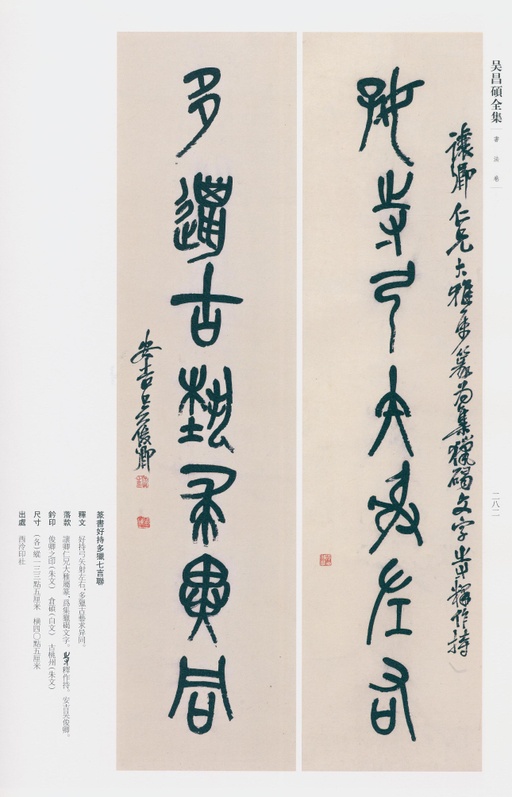 吴昌碩全集
書法卷
二八二
讓卿仁兄大雅屬篆為集獵碣文字寺釋作持
好寺弓矢射左右
多獵古藝求異同
安吉吳俊卿
篆書好持多獵七言聯
釋文 好持弓矢射左右,多獵古藝求异同。
落款 讓卿仁兄大雅屬篆,爲集獵碣文字,寺釋作持。安吉吴俊卿。
鈐印 俊卿之印(朱文) 倉碩(白文) 古桃州(朱文)
尺寸 (各)縱一三三點五厘米 橫四〇點五厘米
出處 西泠印社